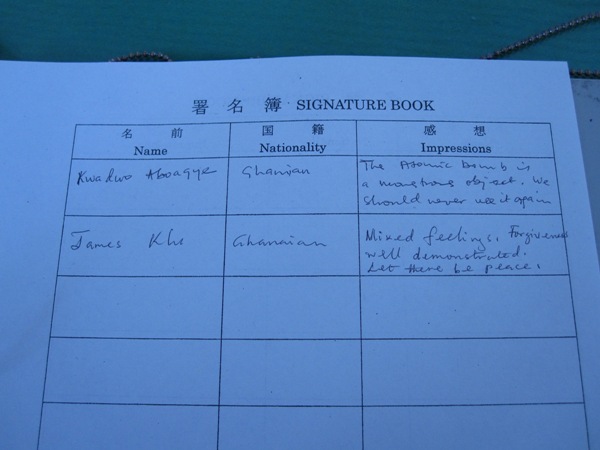 署名簿 SIGNATURE BOOK
名前 国籍 感想
Name Nationality Impressions
Kwadwo Aboagye Ghanian The Atomic bomb is
a monstrous object. We
should never use it again
James Ghanaian Mixed feelings. Forgiveness
well demonstrated.
Let there be peace.